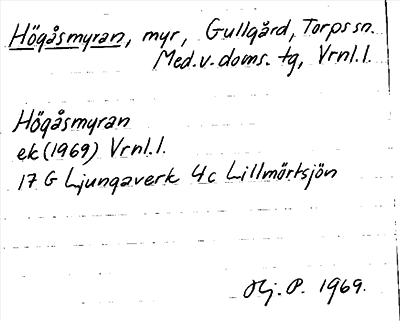 Högåsmyran, myr, Gullgård, Torps sn.
Med.v.doms. tg, Vrnl.l.
Högåsmyran
ek (1969) Vrnl.l.
17 G Ljungaverk 4c Lillmörtsjön
Hj. P. 1969.